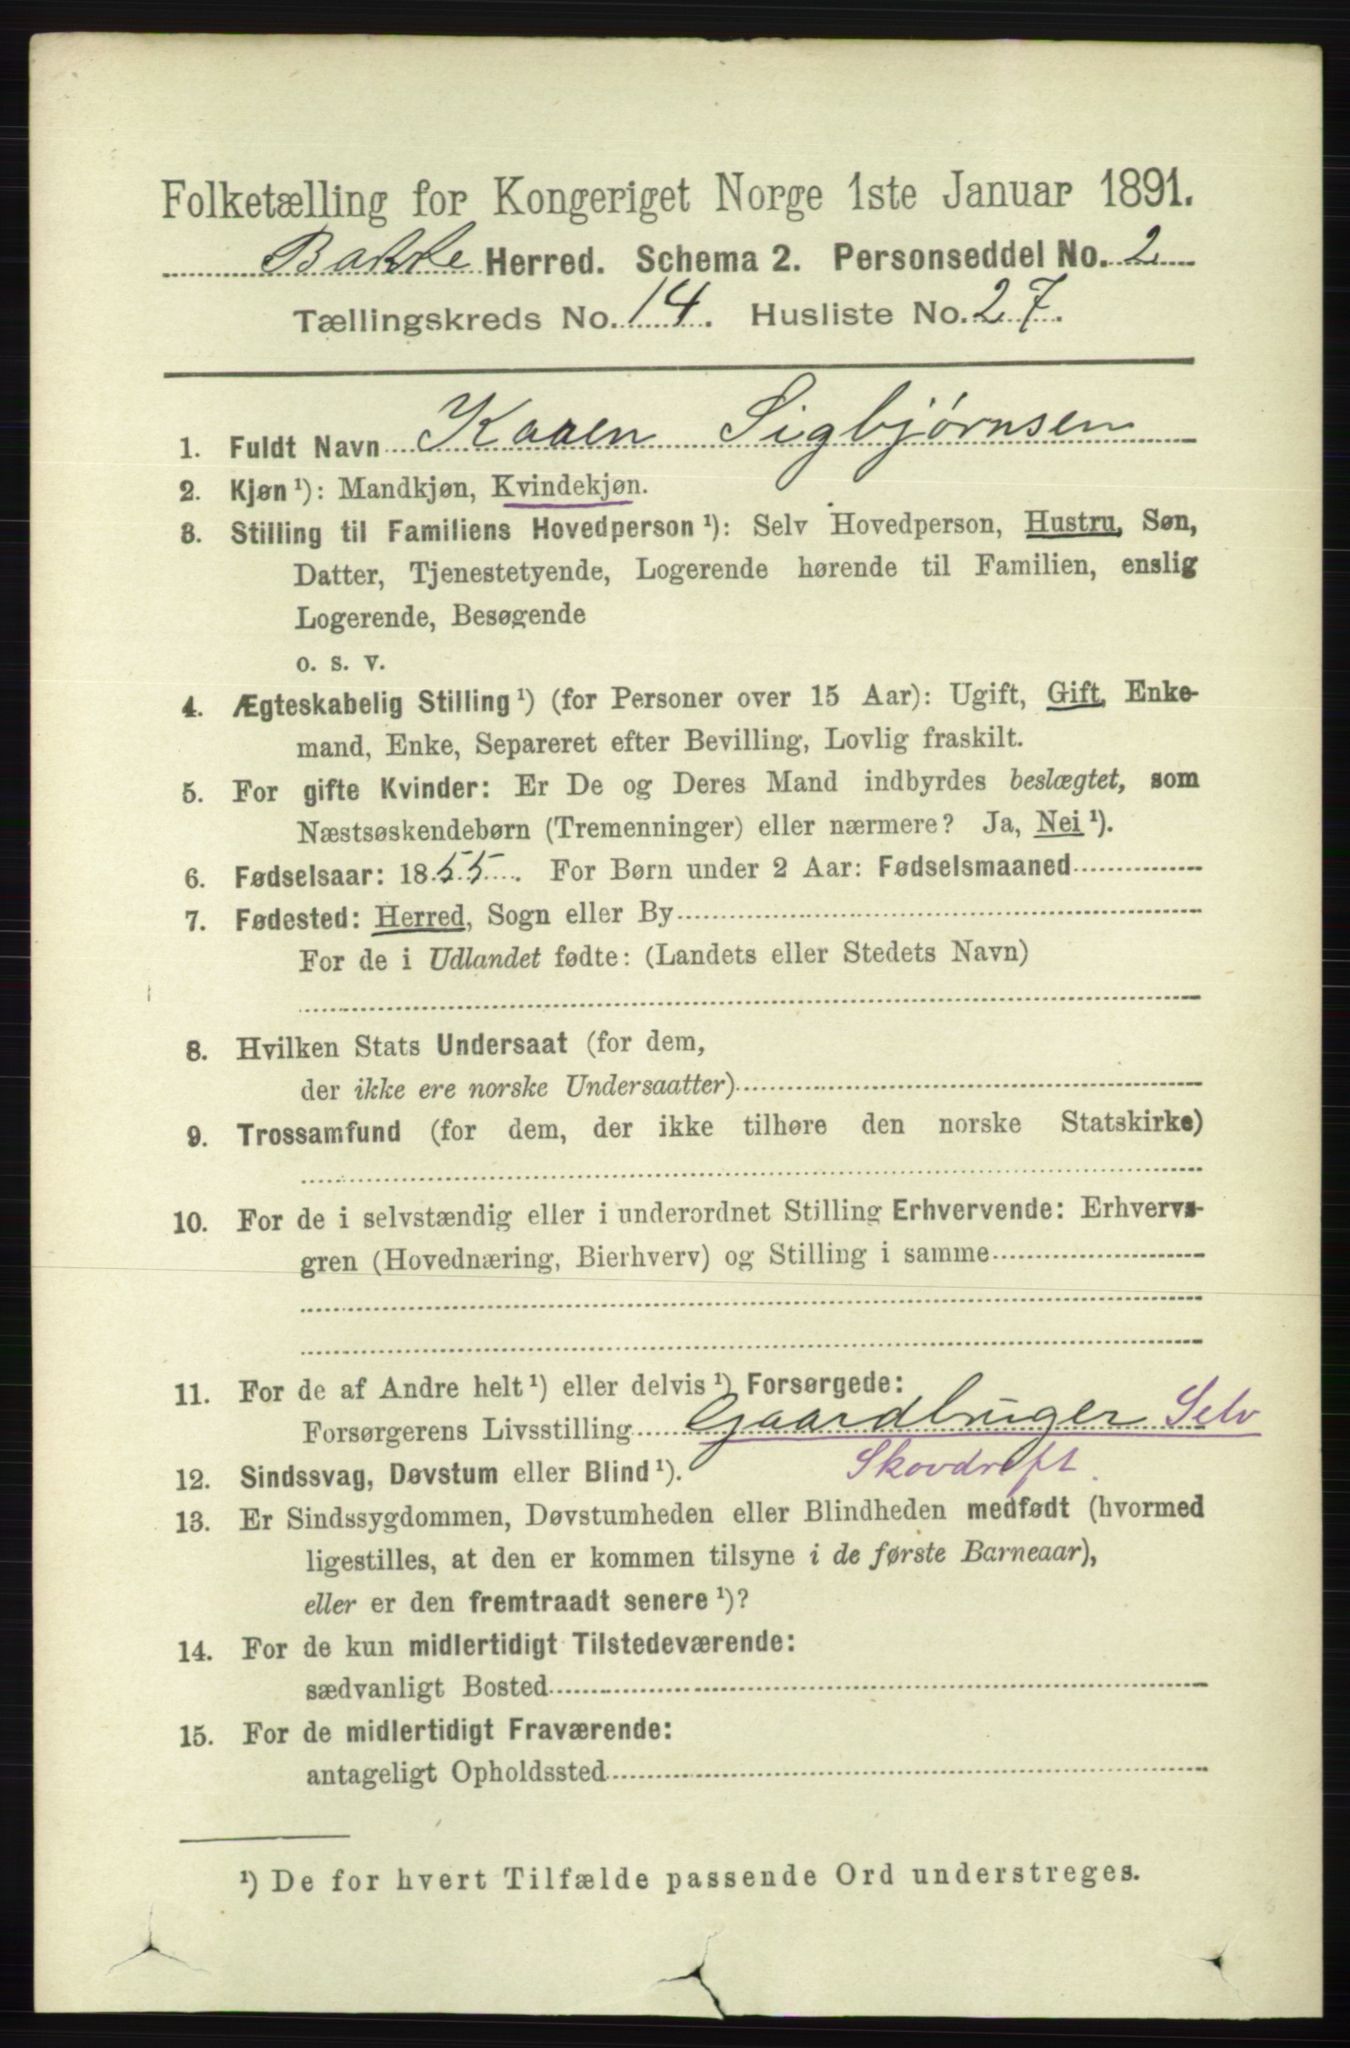 Folketælling for Kongeriget Norge 1ste Januar 1891.
Bakke Herred. Schema 2. Personseddel No. 2
Tællingskreds No. 14. Husliste No. 27.
1. Fuldt Navn Karen Sigbjørnsen
2. Kjøn ¹): Mandkjøn, Kvindekjøn.
3. Stilling til Familiens Hovedperson ¹): Selv Hovedperson, Hustru, Søn,
Datter, Tjenestetyende, Logerende hørende til Familien, enslig
Logerende, Besøgende
o. s. v.
4. Ægteskabelig Stilling ¹) (for Personer over 15 Aar): Ugift, Gift, Enke-
mand, Enke, Separeret efter Bevilling, Lovlig fraskilt.
5. For gifte Kvinder: Er De og Deres Mand indbyrdes beslægtet, som
Næstsøskendebørn (Tremenninger) eller nærmere? Ja, Nei ¹).
6. Fødselsaar: 1855. For Børn under 2 Aar: Fødselsmaaned
7. Fødested: Herred, Sogn eller By
For de i Udlandet fødte: (Landets eller Stedets Navn)
8. Hvilken Stats Undersaat (for dem,
der ikke ere norske Undersaatter)
9. Trossamfund (for dem, der ikke tilhøre den norske Statskirke)
10. For de i selvstændig eller i underordnet Stilling Erhvervende: Erhvervs-
gren (Hovednæring, Bierhverv) og Stilling i samme
11. For de af Andre helt ¹) eller delvis ¹) Forsørgede:
Forsørgerens Livsstilling Gaardbruger Selv
12. Sindssvag, Døvstum eller Blind ¹). Skovdrift.
13. Er Sindssygdommen, Døvstumheden eller Blindheden medfødt (hvormed
ligestilles, at den er kommen tilsyne i de første Barneaar),
eller er den fremtraadt senere ¹)?
14. For de kun midlertidigt Tilstedeværende:
sædvanligt Bosted
15. For de midlertidigt Fraværende:
antageligt Opholdssted
¹) De for hvert Tilfælde passende Ord understreges.